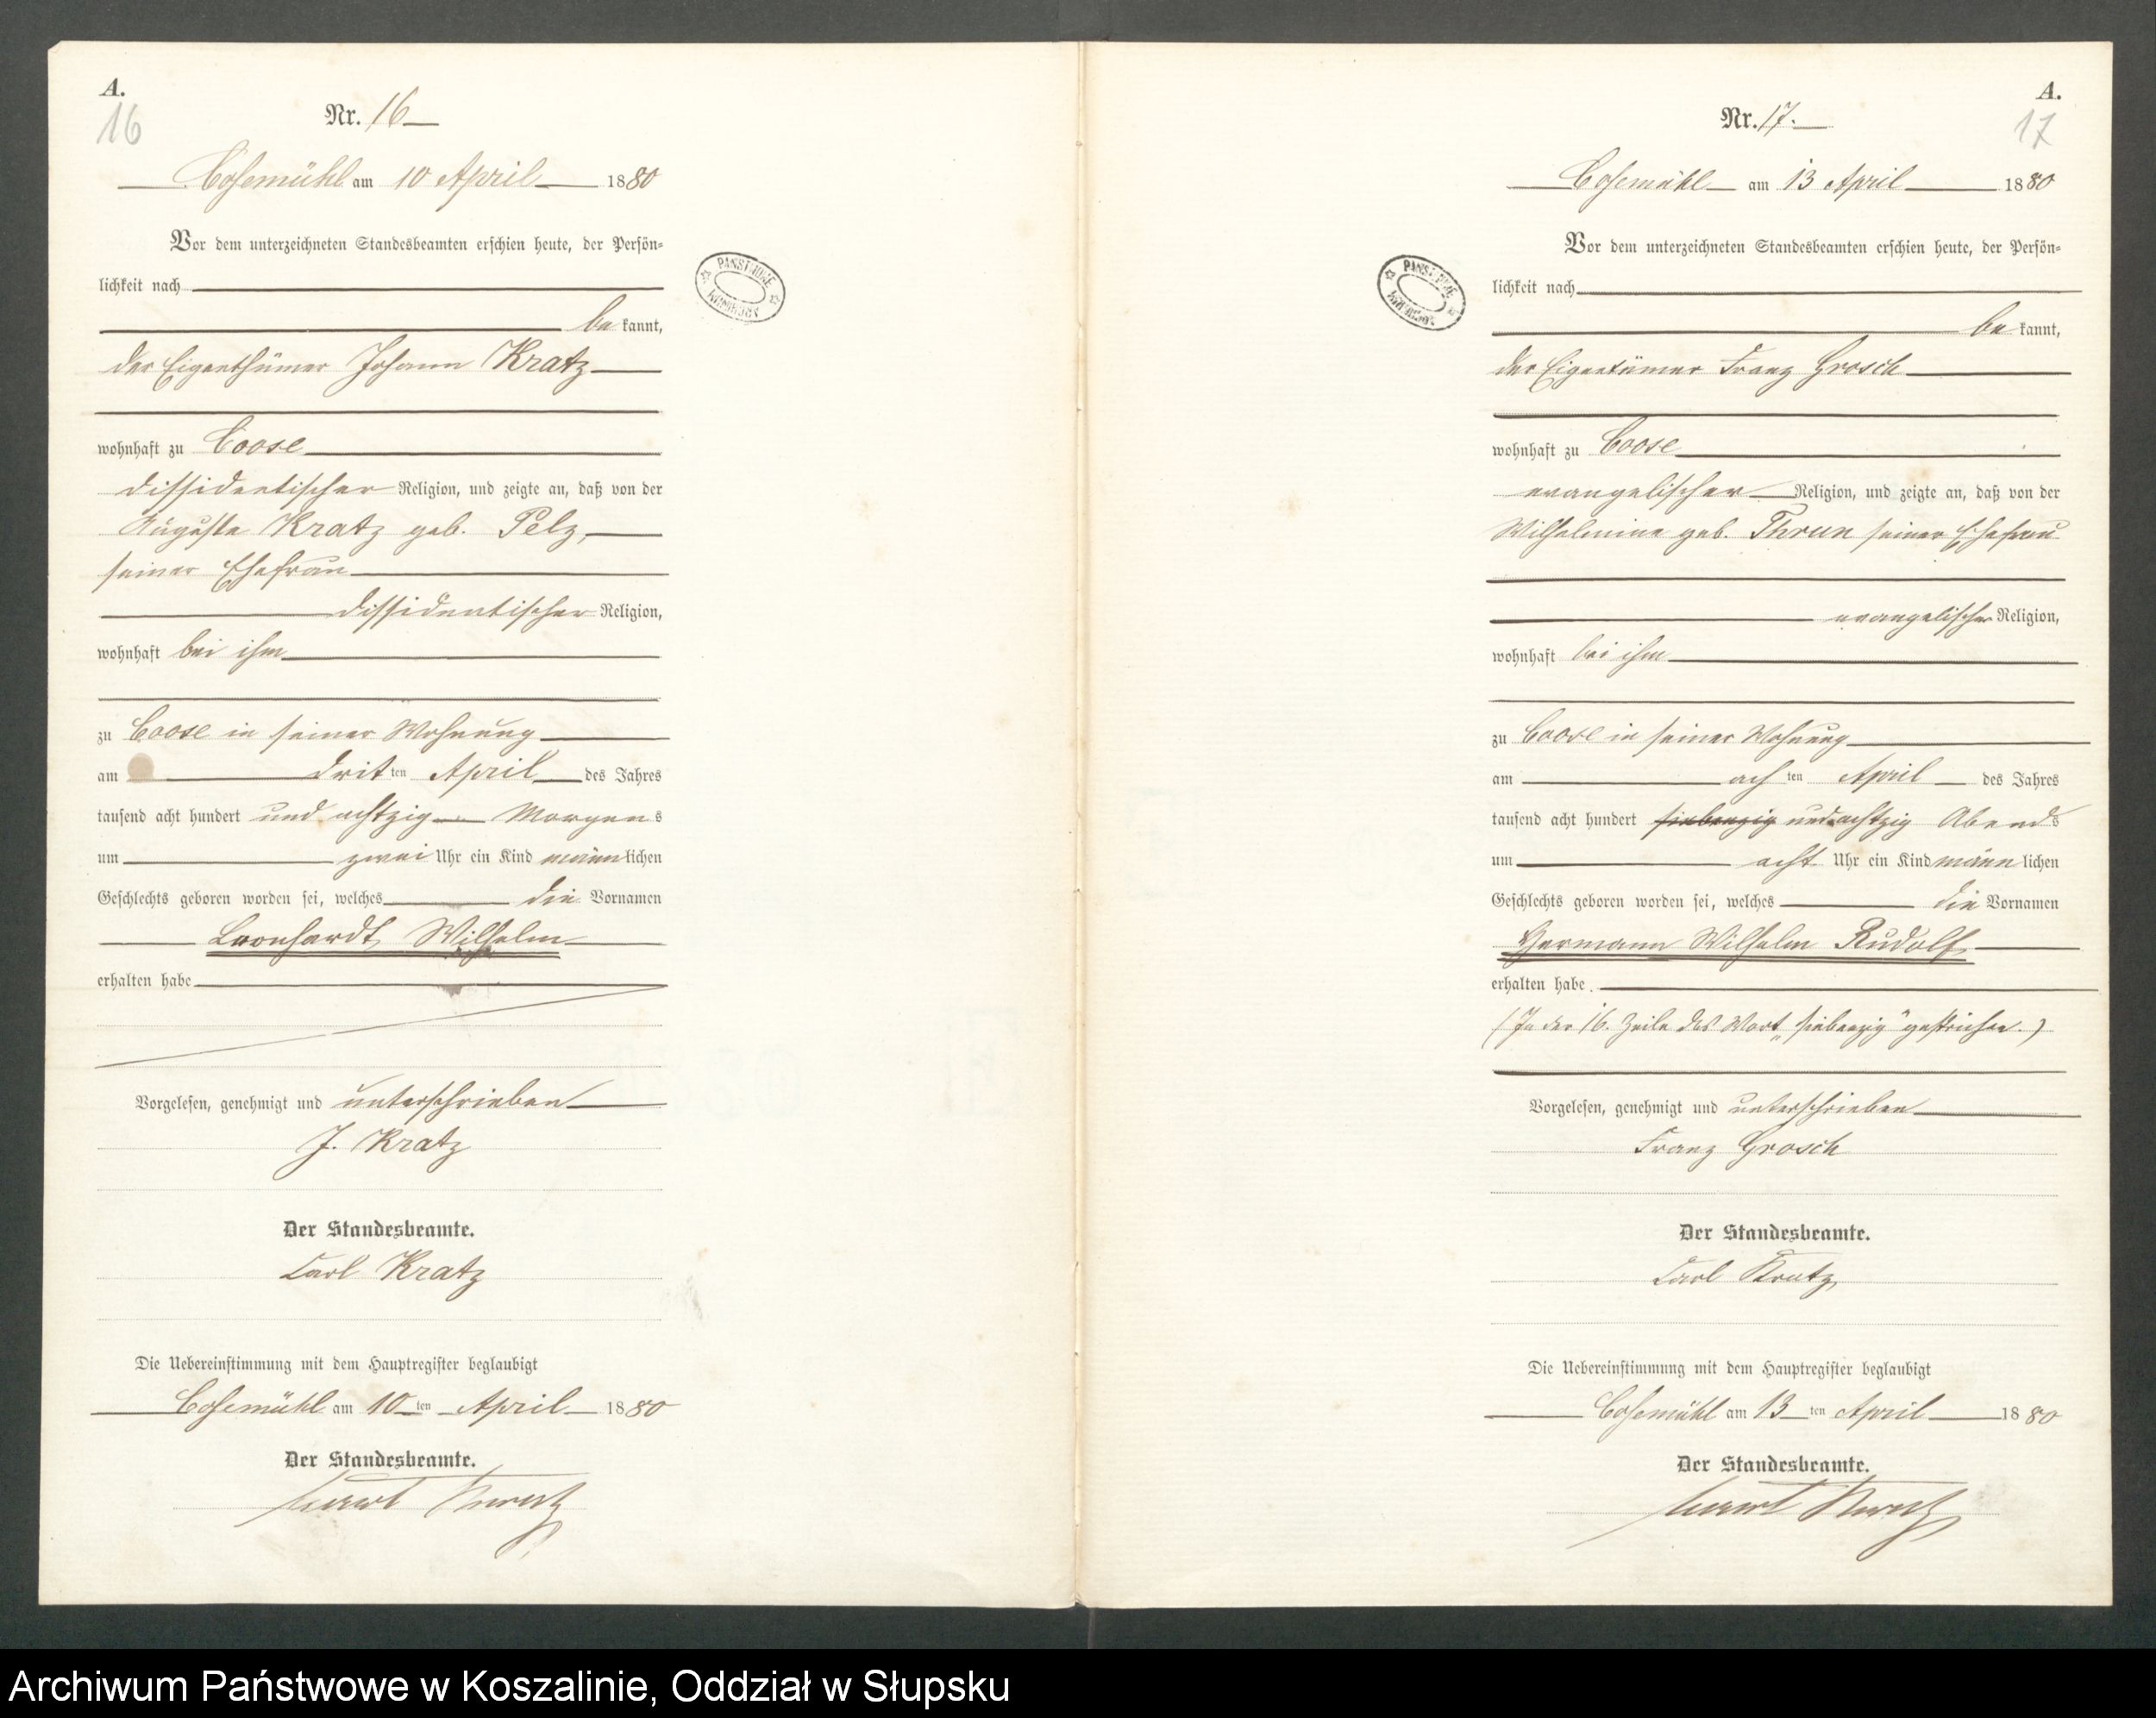 A.
16
Nr. 16
Cosemühl am 10 April 1880
Vor dem unterzeichneten Standesbeamten erschien heute, der Persön-
lichkeit nach
be kannt,
der Eigenthümer Johann Kratz
wohnhaft zu Coose
dissidentischer Religion, und zeigte an, daß von der
Auguste Kratz geb. Pelz,
seiner Ehefrau
dissidentischer Religion,
wohnhaft bei ihm
zu Coose in seiner Wohnung
am dritten April des Jahres
tausend acht hundert und achtzig Morgens
um zwei Uhr ein Kind männlichen
Geschlechts geboren worden sei, welches die Vornamen
Leonhardt Wilhelm
erhalten habe
Vorgelesen, genehmigt und unterschrieben
J. Kratz
Der Standesbeamte.
Carl Kratz
Die Uebereinstimmung mit dem Hauptregister beglaubigt
Cosemühl am 10ten April 1880
Der Standesbeamte.
A.
17
Nr. 17.
Cosemühl am 13 April 1880
Vor dem unterzeichneten Standesbeamten erschien heute, der Persön-
lichkeit nach
be kannt,
der Eigentümer Franz Grosch
wohnhaft zu Coose
evangelischer Religion, und zeigte an, daß von der
Wilhelmine geb. Thrun seiner Ehefrau
evangelischer Religion,
wohnhaft bei ihm
zu Coose in seiner Wohnung
am achten April des Jahres
tausend acht hundert siebenzig und achtzig Abends
um acht Uhr ein Kind männlichen
Geschlechts geboren worden sei, welches die Vornamen
Hermann Wilhelm Rudolf
erhalten habe.
(In der 16. Zeile das Wort „siebenzig" gestrichen.)
Vorgelesen, genehmigt und unterschrieben
Franz Grosch
Der Standesbeamte.
Carl Kratz
Die Uebereinstimmung mit dem Hauptregister beglaubigt
Cosemühl am 13ten April 1880
Der Standesbeamte.
Archiwum Państwowe w Koszalinie, Oddział w Słupsku